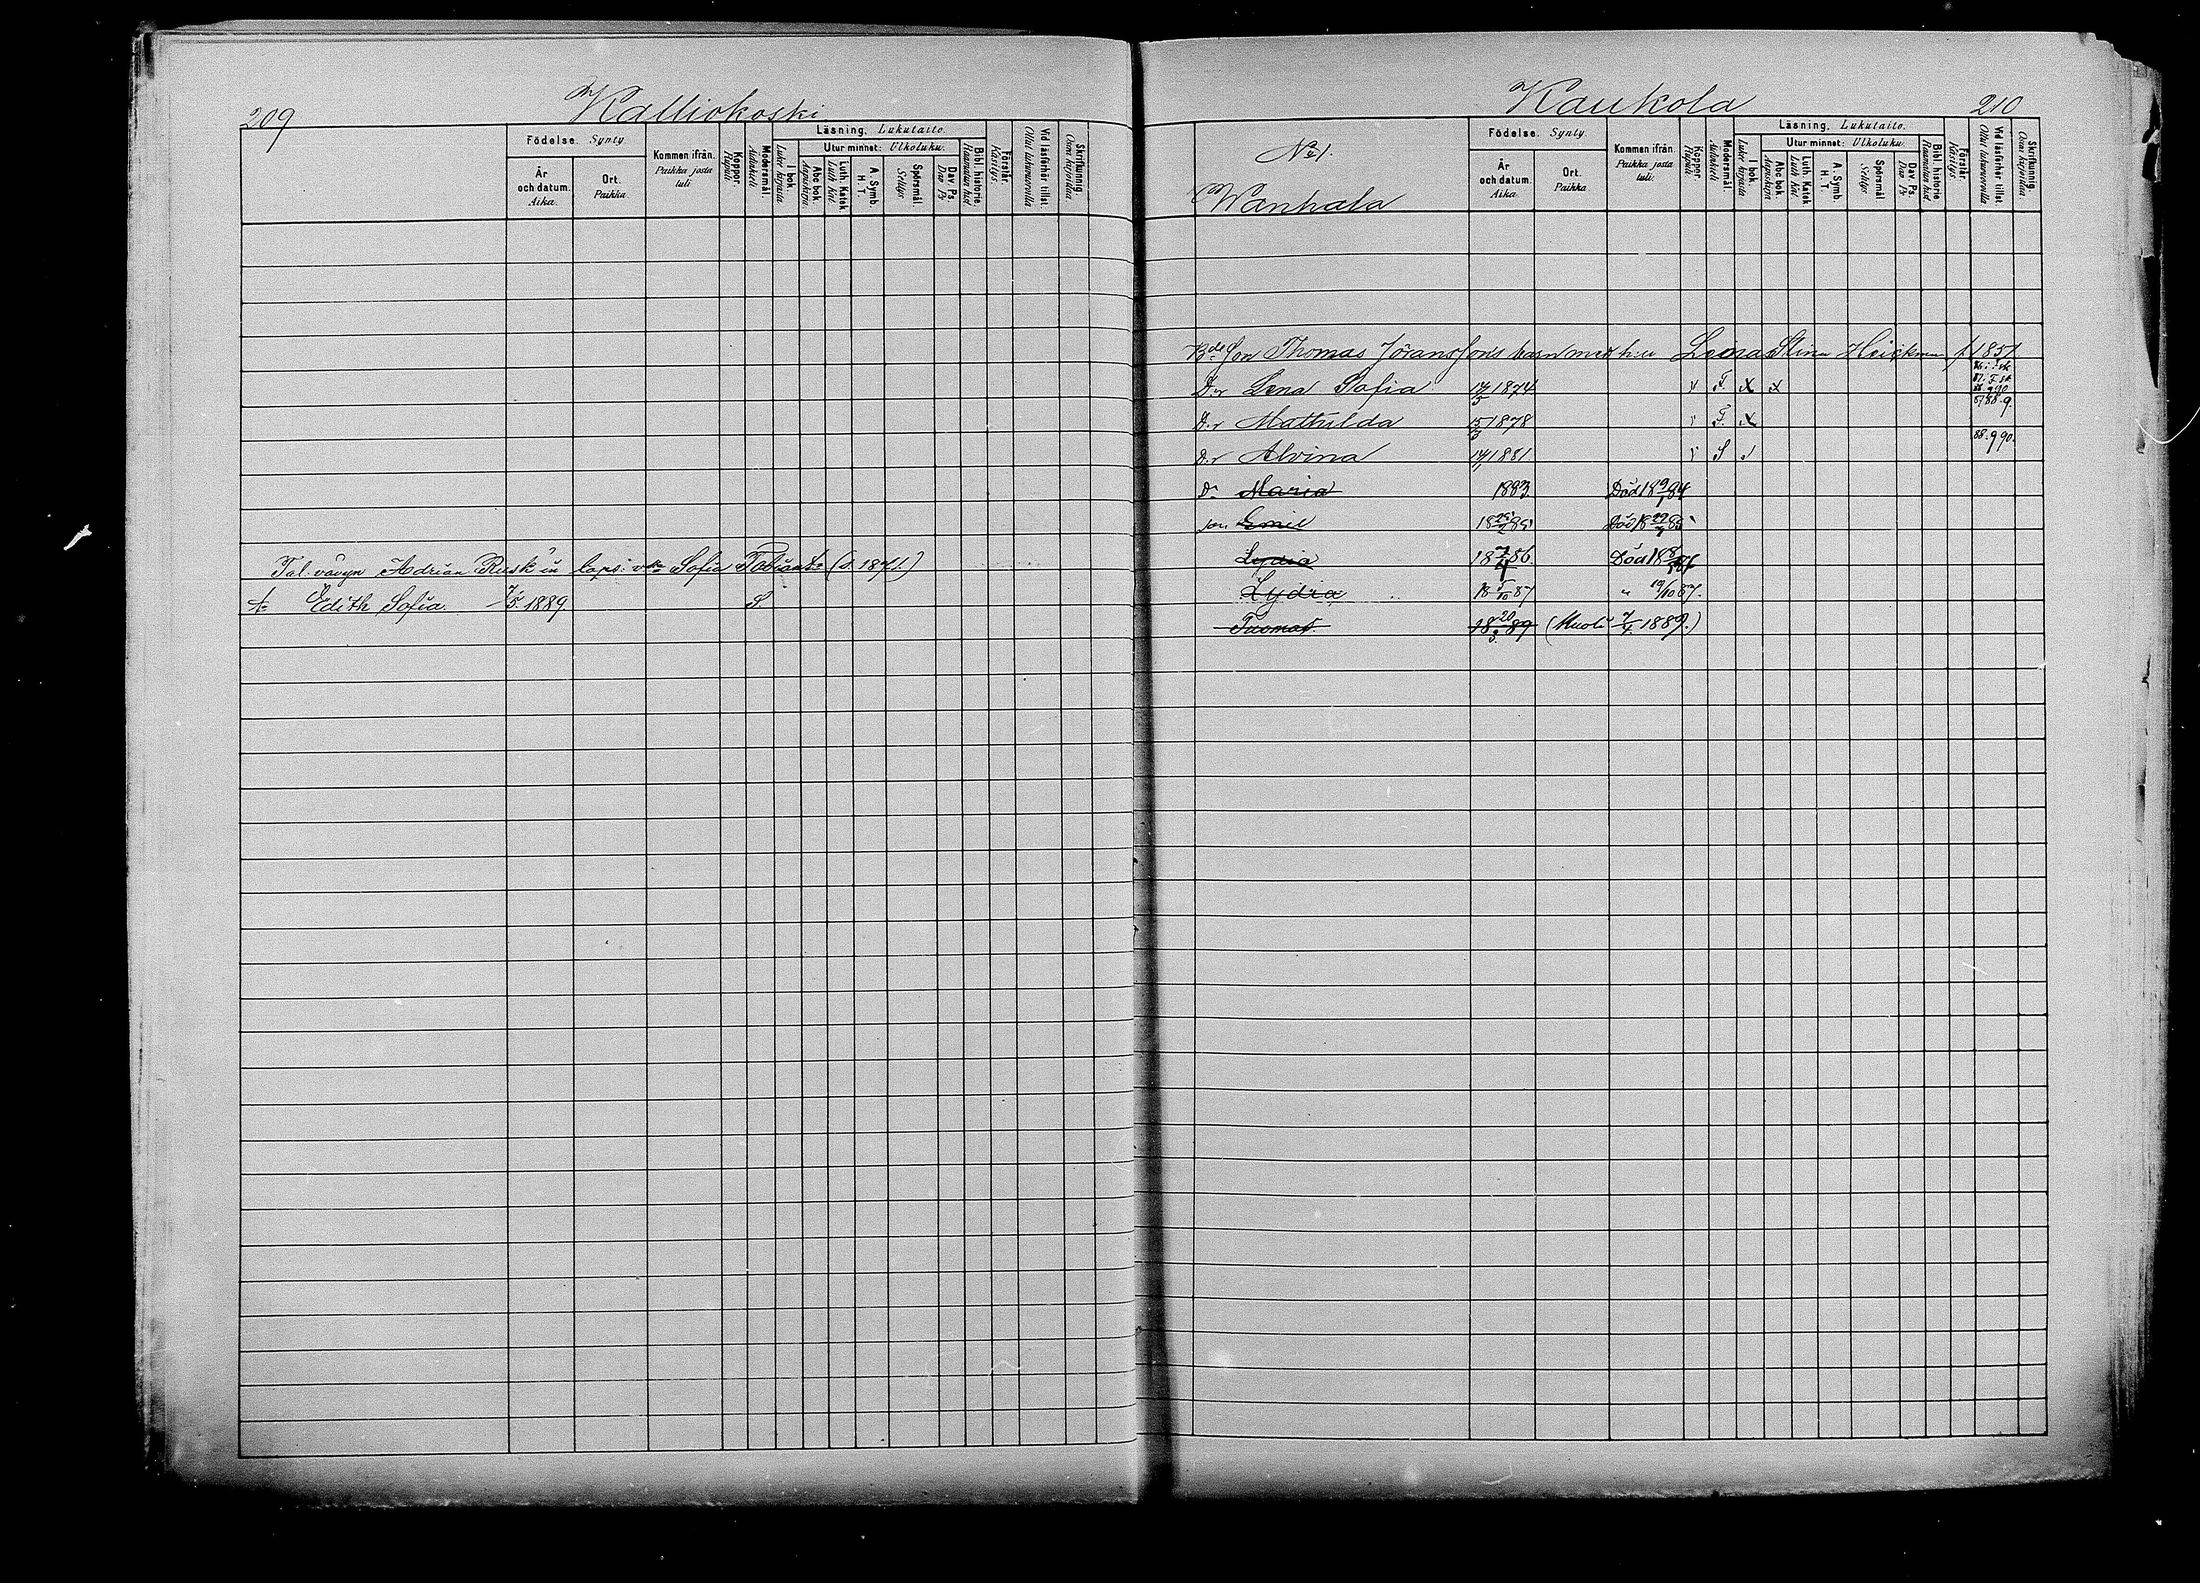 209
Kalliokoski
Födelse. Synty
År och datum. Aika.
Ort. Paikka.
Kommen ifrån. Paikka josta tuli
Koppor. Rupuli
Modersmål. Äidinkieli
Läsning. Lukutaito.
I bok. Lukee kirjasta
Utur minnet: Ulkoluku.
Abc bok. Aapiskirja
Luth. Katek. Luth. Kat.
A. Symb. H. T.
Spörsmål. Selitys
Dav. Ps. Dav. Ps
Bibl. historie. Raamatun hist
Förstår. Käsitys
Vid läsförhör tillst. Ollut lukuvuorolla
Skrifkunnig. Osaa kirjoittaa
Tal. vävyn Adrian Rusk'in laps: v:sta Sofia (s. 1871)
Edith Sofia. 7/5. 1889 S.
Kaukola
210
No 1.
Wanhala
Födelse. Synty.
År och datum. Aika
Ort. Paikka
Kommen ifrån. Paikka josta tuli.
Koppor. Rupuli
Modersmål. Äidinkieli
Läsning. Lukutaito.
I bok. Lukee kirjasta
Utur minnet: Ulkoluku.
Abc bok. Aapiskirja
Luth. Katek Luth. Kat
A. Symb. H. T.
Spörsmål Selitys
Dav. Ps. Dav Ps
Bibl. historie Raamatun hist
Förstår. Käsitys
Vid läsförhör tillst. Ollut lukuvuorolla
Skrifkunnig. Osaa kirjoittaa.
Bdeson Thomas Jöranssons barn med h:u Lena Stina f 1851
D:r Lena Sofia 1874 v F. x x
D:r Mathilda 15/3 1878 v F. x 88.9.
D:r Alvina 1881 v S v 88.9 90.
Dr Maria 1883. Död 18 9/1 84
son Emil 18 85 Död 18 85
Lydia 18 86. Död 18 86
Lydia 18 5/10 87 " 19/10 87.
Tuomas. 18 20/3 89 (Kuoli 7/4 1889.)